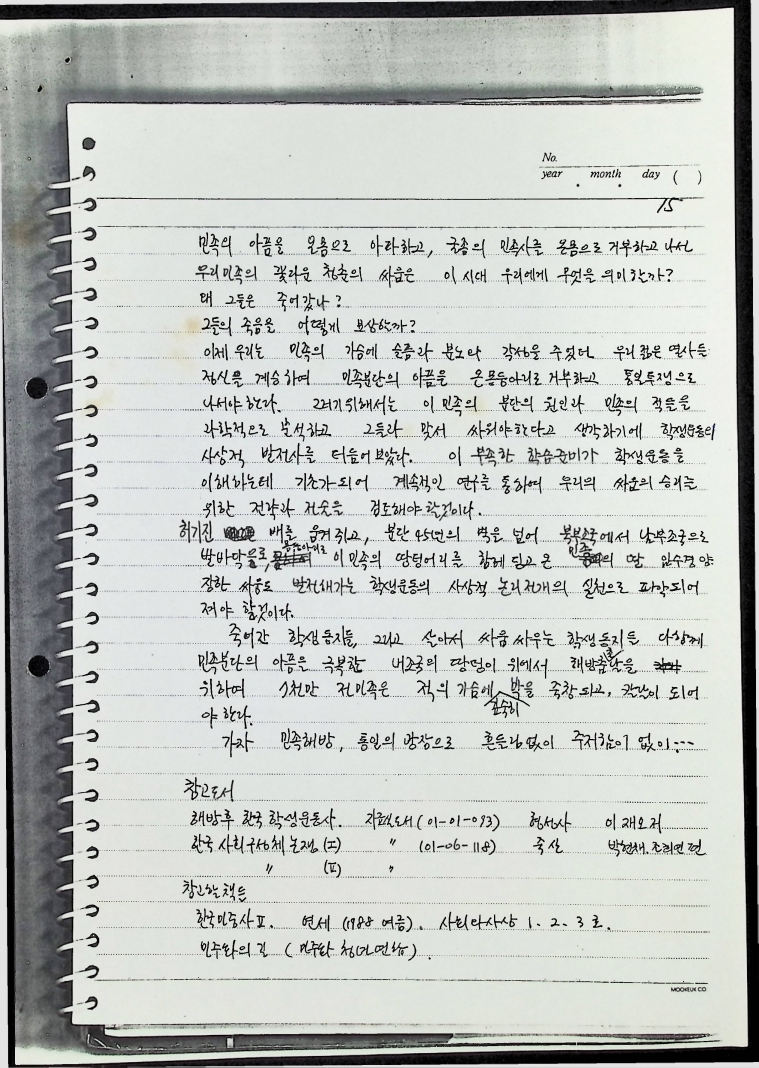 No.
year month day ( )
15
민족의 아픔을 온몸으로 아파하고, 굴종의 민족사를 온몸으로 거부하고 나선
우리민족의 꽃다운 청춘의 싸움은 이 시대 우리에게 무엇을 의미한가?
왜 그들은 죽어갔나?
그들의 죽음을 어떻게 보상한까?
이제 우리는 민족의 가슴에 슬픔과 분노와 각성을 주었던 우리 젊은 열사들
정신를 계승하여 민족분단의 아픔을 온몽둥아리로 거부하고 통일투쟁으로
나서야 한다. 그러기위해서는 이 민족의 분단의 원인과 민족의 적들을
과학적으로 분석하고 그들과 맞서 싸워야한다고 생각하기에 학생운동의
사상적 발전사를 더듬어보았다. 이 부족한 학습준비가 학생운동을
이해하는데 기초가되어 계속적인 연구를 통하여 우리의 싸움의 승리를
위한 전략과 전술을 검토해야 할것이다.
허기진 배를 움켜쥐고, 분단 45년의 벽을 넘어 북부조국에서 남부조국으로
발바닥으로, 몽둥아리로 이 민족의 땅덩어리를 함께 딛고 온 민족의 딸 임수경양
장한 싸움도 발전해가는 학생운동의 사상적 논리전개의 실천으로 파악되어
져야 할것이다.
죽어간 학생동지들, 그리고 살아서 싸움 싸우는 학생동지들 다함께
민족분단의 아픔을 극복할 내조국의 땅덩이 위에서 해방춤을
위하여 7천만 전민족은 적의 가슴에 깊숙히 박을 죽창되고, 칼날이 되어
야 한다.
가자 민족해방, 통일의 광장으로 흔들림없이 주저함이 없이…
참고도서
해방후 한국 학생운동사. 자료실도서 (01-01-093) 형성사 이재오 저
한국 사회구성체 논쟁 (I) 〃 (01-06-118) 죽산 박현채. 조희연 편
〃 (II) 〃
참고할 책들
한국민중사 II. 연세 (1988 여름). 사회와사상 1. 2. 3 호.
민주화의 길 (민주화 청년연합).
MOOKEUK CO